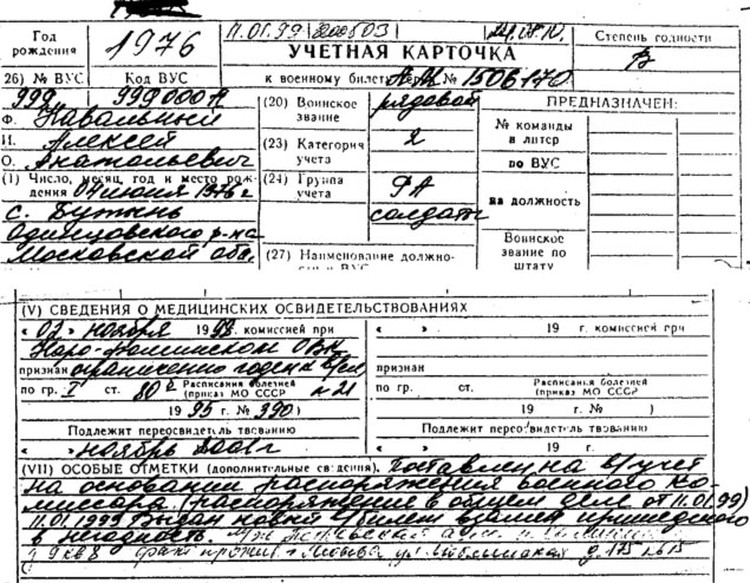 11.01.99 200503 24.08.10.
Год рождения 1976 УЧЕТНАЯ КАРТОЧКА Степень годности
к военному билету серии АК № 1506170 В
26) № ВУС Код ВУС
999 999000А (20) Воинское звание рядовой ПРЕДНАЗНАЧЕН:
Ф. Навальный № команды и литер
И. Алексей (23) Категория учета 2
О. Анатольевич по ВУС
(1) Число, месяц, год и место рождения 04 июня 1976 г (24) Группа учета ФА солдаты
с. Бутынь на должность
Одинцовского р-на
Московской обл. (27) Наименование должности и ВУС Воинское звание по штату
(V) СВЕДЕНИЯ О МЕДИЦИНСКИХ ОСВИДЕТЕЛЬСТВОВАНИЯХ
« 02 » ноября 1998 комиссией при « » 19 г. комиссией при
Наро-Фоминском ОВК
признан ограниченно годен к в/сл. признан
по гр. I ст. 80 Расписания болезней (приказ МО СССР по гр. ст. Расписания болезней (приказ МО СССР
1995 г. № 390) 19 г. № )
Подлежит переосвидетельствованию Подлежит переосвидетельствованию
« » ноябрь 2001 г « » 19 г.
(VII) ОСОБЫЕ ОТМЕТКИ (дополнительные сведения). Поставлен на в/учет
на основании распоряжения военного ко-
миссара (распоряжение в общем деле от 11.01.99)
11.01.1999 Выдан новый в/билет взамен пришедшего
в негодность.
факт прожив г Москва ул. Люблинская д. 175